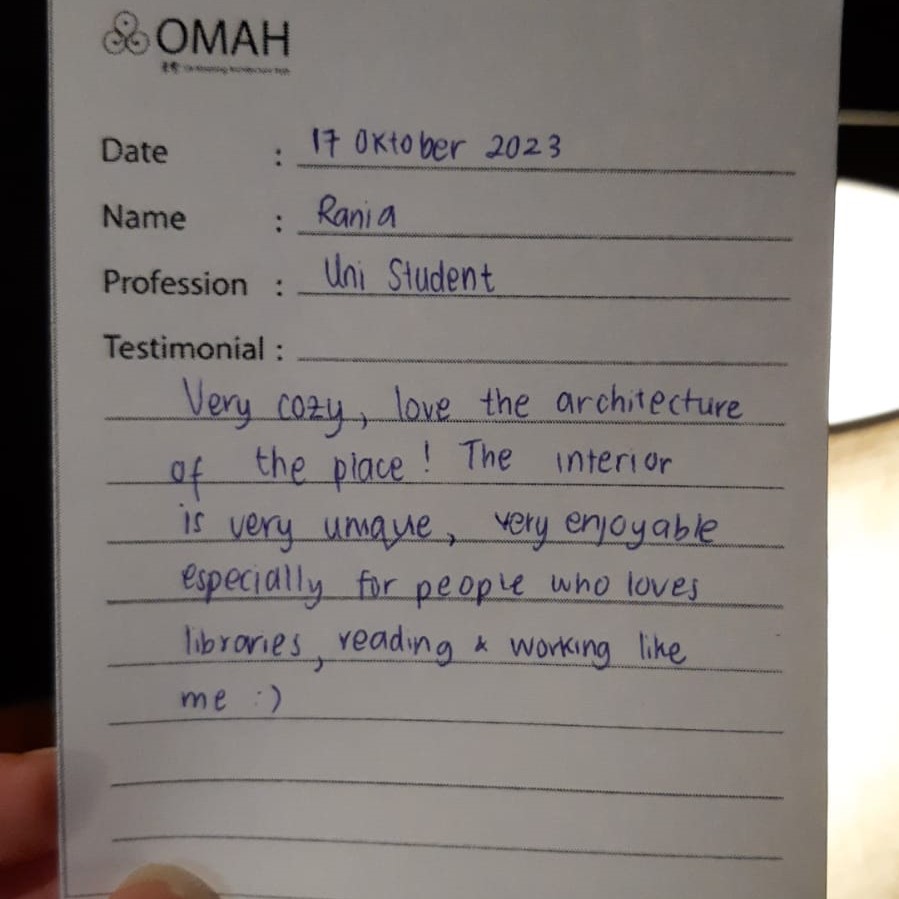 OMAH
Date : 17 Oktober 2023
Name : Rania
Profession : Uni Student
Testimonial :
Very cozy, love the architecture
of the place! The interior
is very unique, very enjoyable
especially for people who loves
libraries, reading & working like
me :)